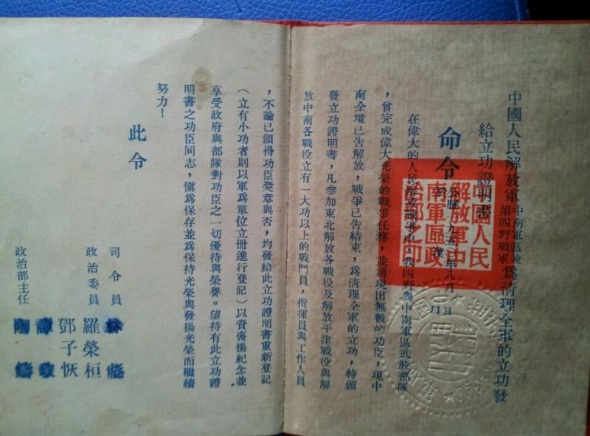 中國人民解放軍中南軍區暨第四野戰軍為清理全軍的立功發
給立功證明書
命令
在偉大的人民
中南軍區武裝部隊
，曾完成偉大光榮的戰爭任務，並湧現出無數的功臣，現中
南全境已告解放，戰爭已告結束，為清理全軍的立功，特頒
發立功證明書，凡參加東北解放各戰役及解放平津戰役與解
放中南各戰役立有一大功以上的戰鬥員，指揮員與工作人員
，不論已領得功臣獎章與否，均發給此立功證明書重新登記
（立有小功者則以軍為單位立冊進行登記）以資褒揚紀念並
享受政府與部隊對功臣之一切優待與榮譽。望持有此立功證
明書之功臣同志，慎為保存並為保持光榮與發揚光榮而繼續
努力！
此令
司令員 林彪
政治委員 羅榮桓
鄧子恢
譚政
政治部主任 陶鑄
國人民
解放軍中
南軍區政
治部之印